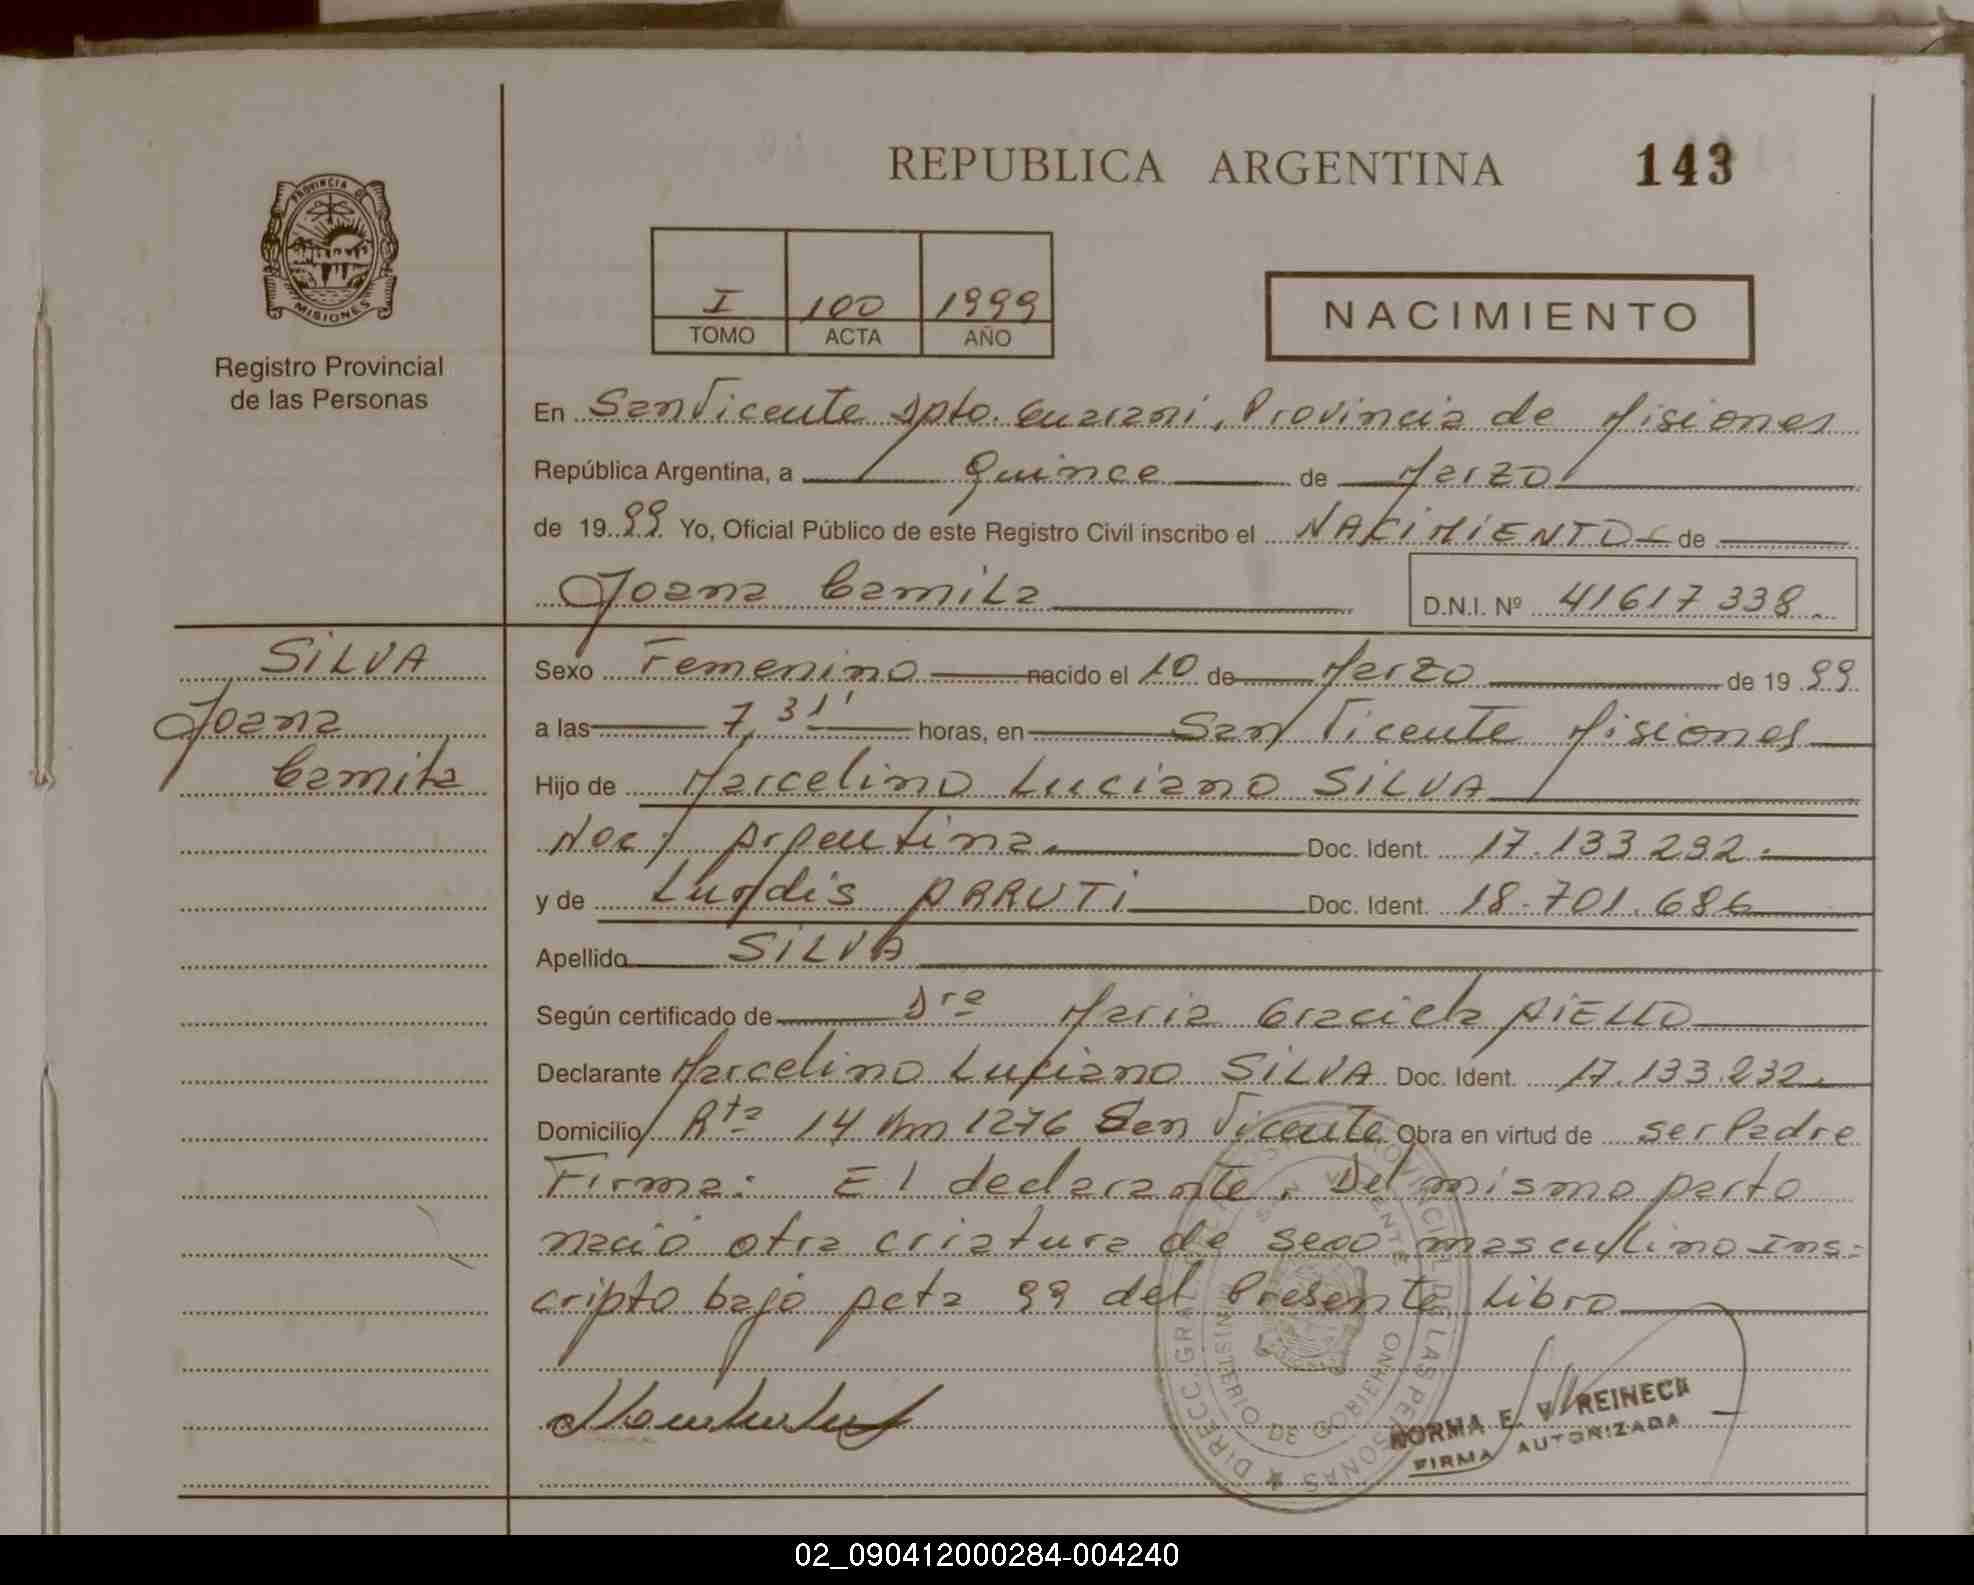 REPUBLICA ARGENTINA 143
PROVINCIA DE
MISIONES
Registro Provincial
de las Personas
I 100 1999
TOMO ACTA AÑO
NACIMIENTO
En San Vicente Dpto. Guarani, Provincia de Misiones
República Argentina, a Quince de Marzo
de 1999 Yo, Oficial Público de este Registro Civil inscribo el NACIMIENTO de
Joana Camila D.N.I. Nº 41617338
SILVA
Joana
Camila
Sexo Femenino nacido el 10 de Marzo de 1999
a las 7,31' horas, en San Vicente Misiones
Hijo de Marcelino Luciano SILVA
Nac. Argentina. Doc. Ident. 17.133.292.
y de Lurdis ARRUTI Doc. Ident. 18.701.686
Apellido SILVA
Según certificado de Dra Maria Graciela AIELLO
Declarante Marcelino Luciano SILVA Doc. Ident. 17.133.232.
Domicilio Rta 14 Km 1276 San Vicente Obra en virtud de ser Padre
Firma: El declarante. Del mismo parto
nació otra criatura de sexo masculino Ins-
cripto bajo Acta 99 del Presente Libro
DIRECC. GRAL. PROVINCIAL DE LAS PERSONAS
SAN VICENTE
MINISTERIO DE GOBIERNO
NORMA E. V. REINECK
FIRMA AUTORIZADA
02_090412000284-004240